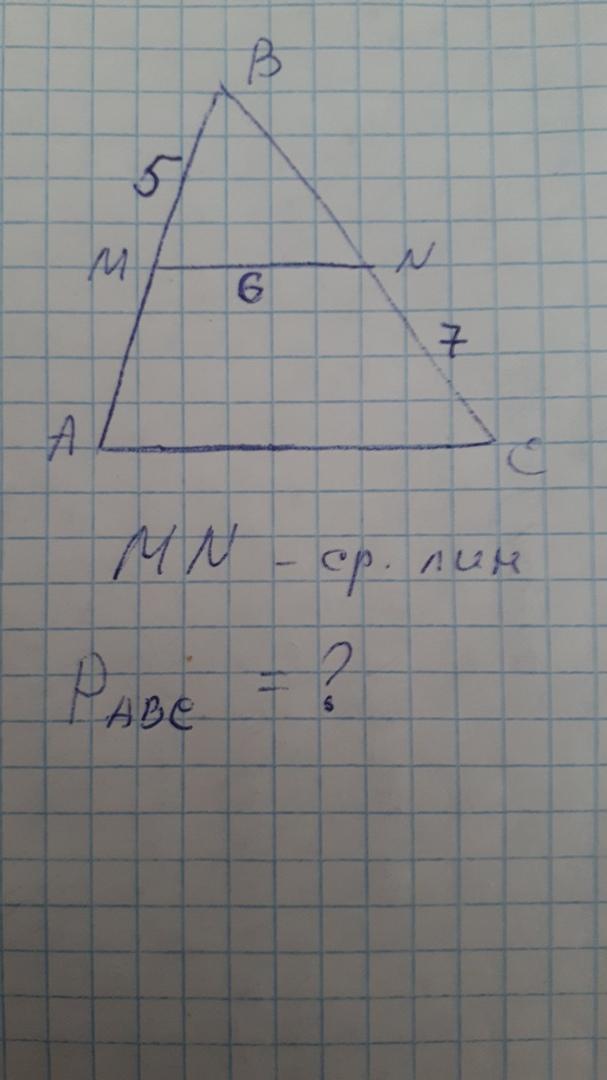 B
5
M
N
6
7
A
C
MN - ср. лин
P ABC = ?